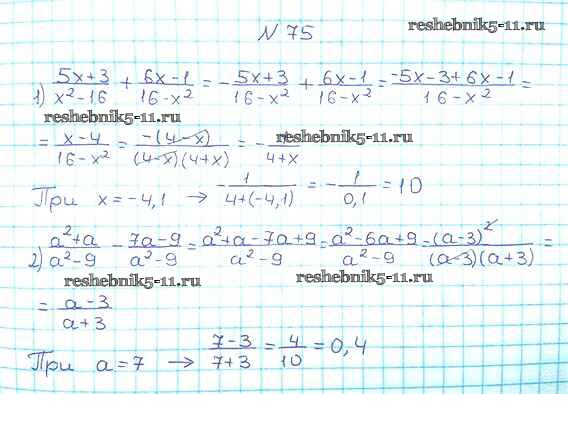 reshebnik5-11.ru
№ 75
1) (5x+3)/(x²-16) + (6x-1)/(16-x²) = -(5x+3)/(16-x²) + (6x-1)/(16-x²) = (-5x-3+6x-1)/(16-x²) =
reshebnik5-11.ru
reshebnik5-11.ru
= (x-4)/(16-x²) = (-(4-x))/((4-x)(4+x)) = -1/(4+x)
При x=-4,1 → -1/(4+(-4,1)) = -1/(0,1) = 10
2) (a²+a)/(a²-9) - (7a-9)/(a²-9) = (a²+a-7a+9)/(a²-9) = (a²-6a+9)/(a²-9) = (a-3)²/((a-3)(a+3)) =
reshebnik5-11.ru
reshebnik5-11.ru
= (a-3)/(a+3)
При a=7 → (7-3)/(7+3) = 4/10 = 0,4